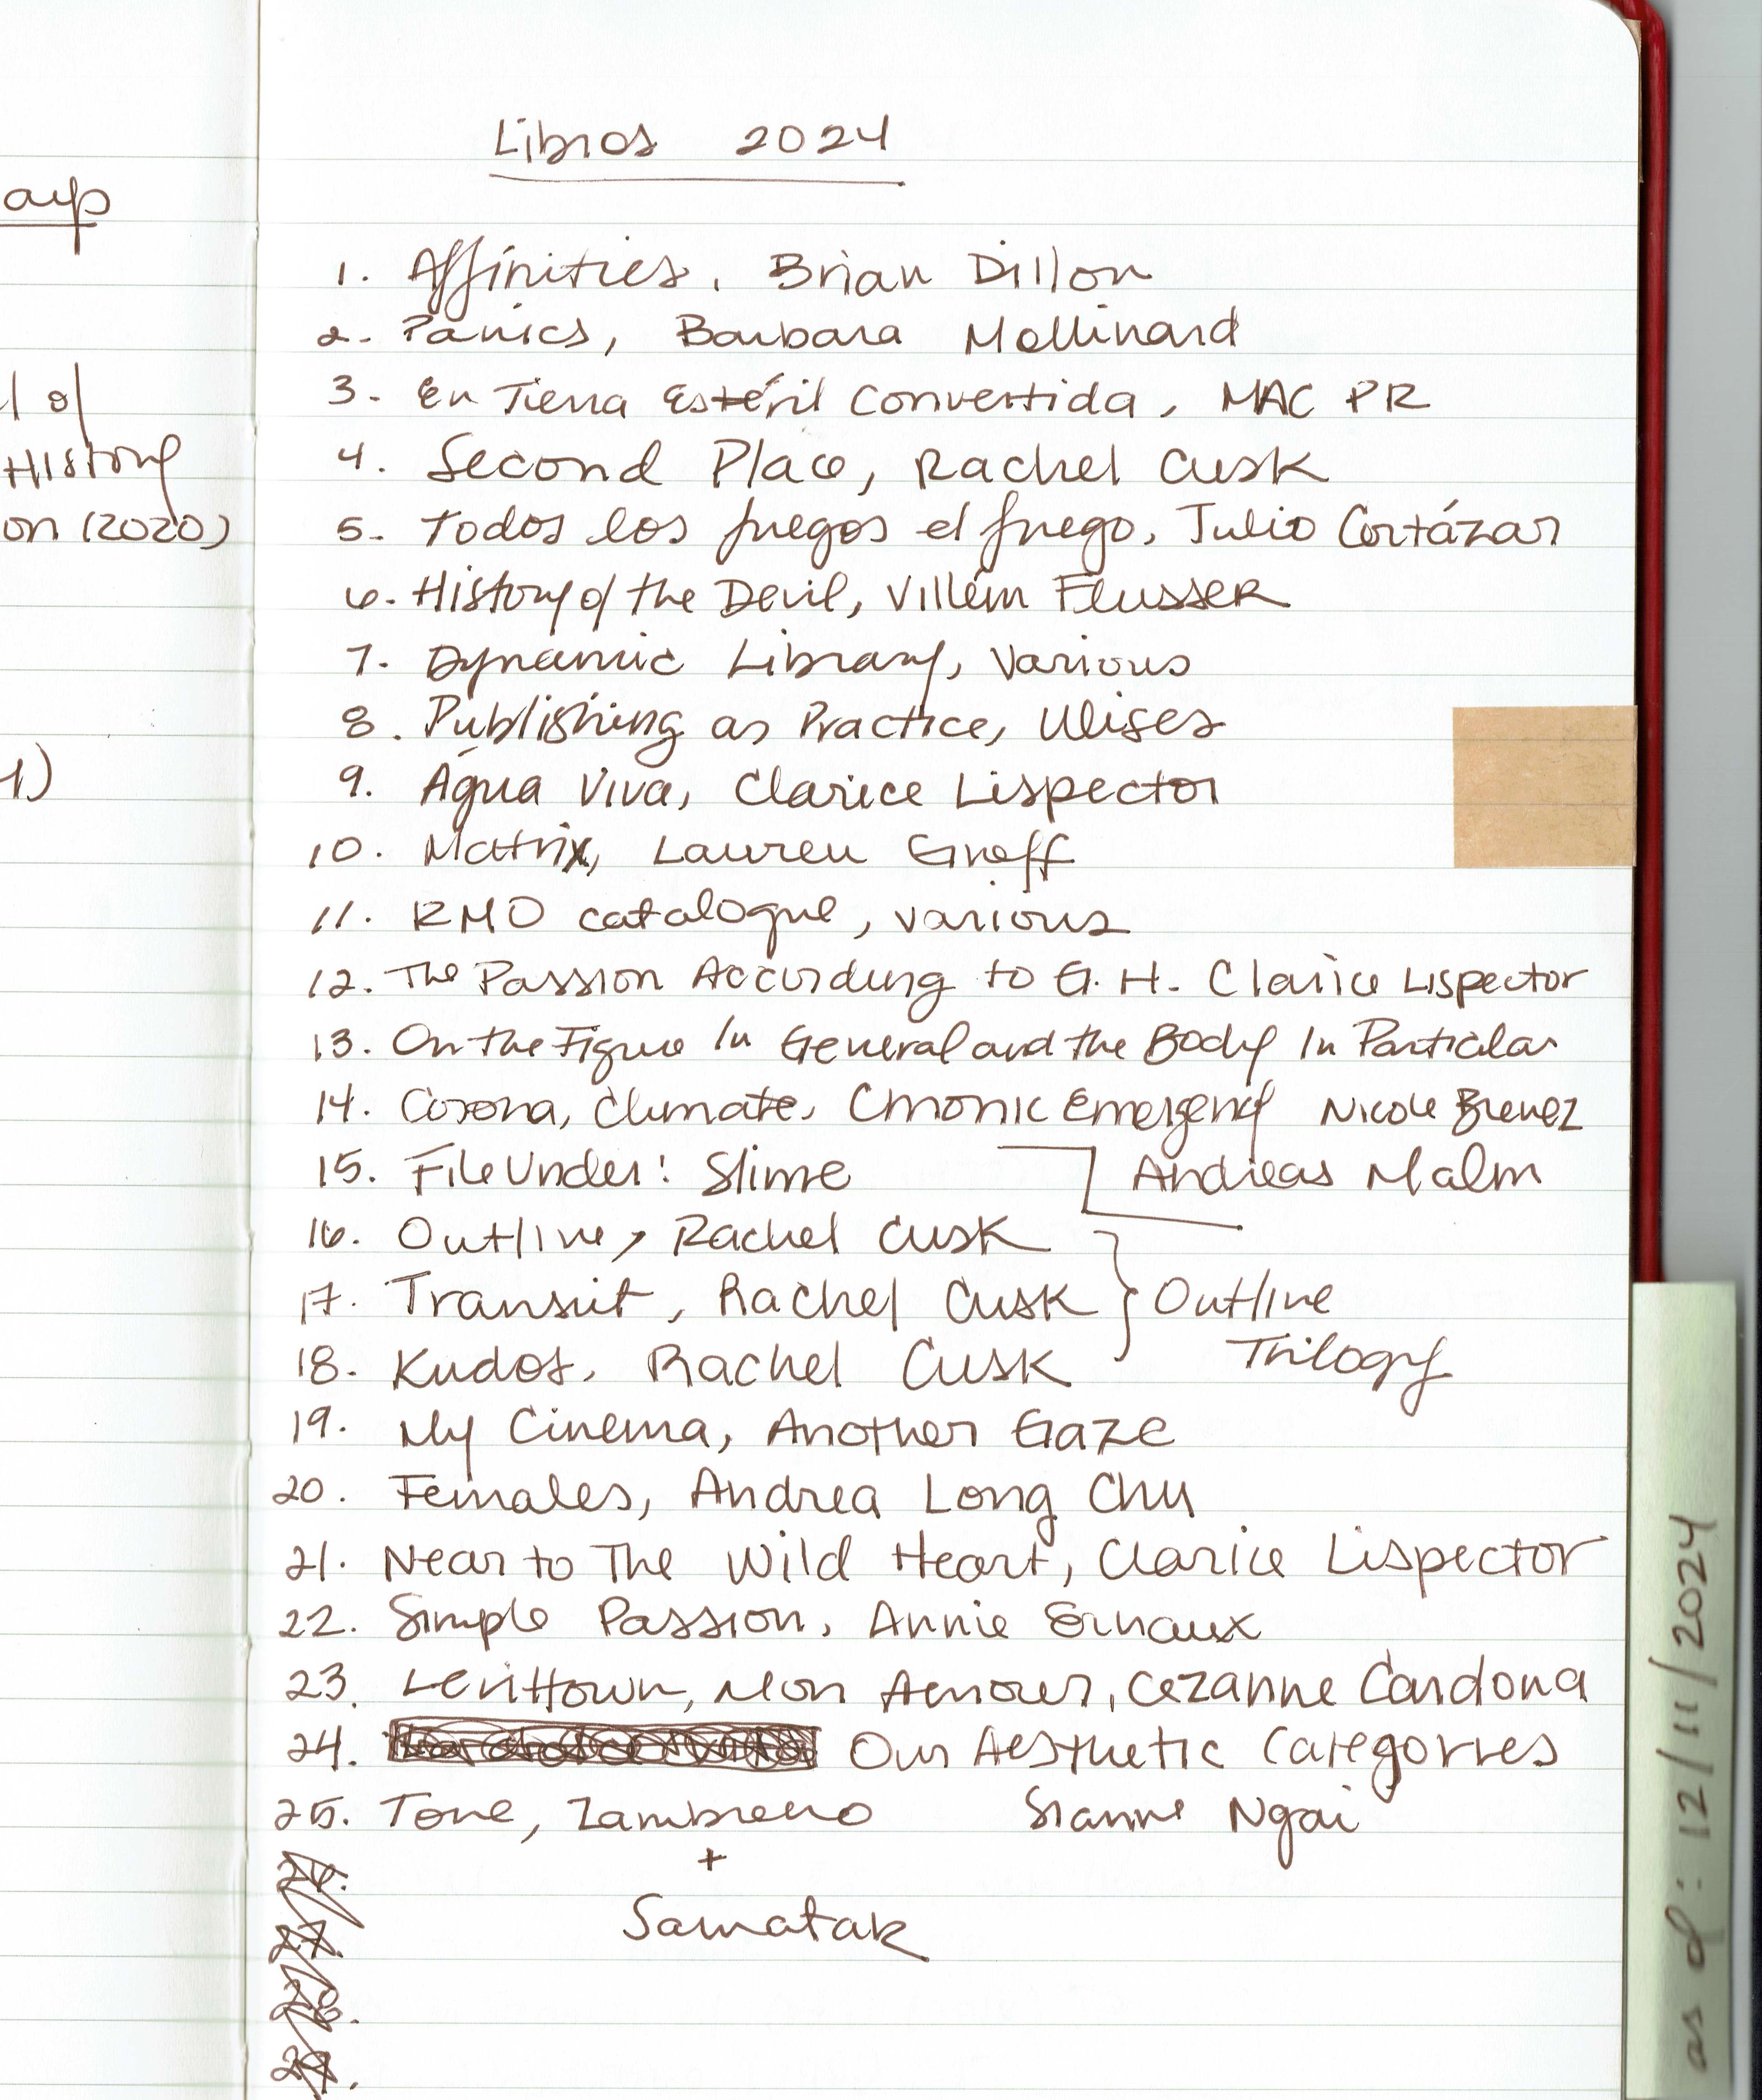 Libros 2024
1. Affinities, Brian Dillon
2. Panics, Barbara Mollinard
3. En Tierra Estéril Convertida, MAC PR
4. Second Place, Rachel Cusk
5. Todos los fuegos el fuego, Julio Cortázar
6. History of the Devil, Villém Flusser
7. Dynamic Library, Various
8. Publishing as Practice, Ulises
9. Água Viva, Clarice Lispector
10. Matrix, Lauren Groff
11. RMO catalogue, various
12. The Passion According to G.H. Clarice Lispector
13. On the Figure In General and the Body In Particular
14. Corona, Climate, Chronic Emergency Nicole Brenez
15. File Under: Slime Andreas Malm
16. Outline, Rachel Cusk
17. Transit, Rachel Cusk } Outline
18. Kudos, Rachel Cusk Trilogy
19. My Cinema, Another Gaze
20. Females, Andrea Long Chu
21. Near to The Wild Heart, Clarice Lispector
22. Simple Passion, Annie Ernaux
23. Levittown, Mon Amour, Cezanne Cardona
24. Our Aesthetic Categories
25. Tone, Zambreno Sianne Ngai
+
Samatar
26.
27.
28.
29.
as of: 12/11/2024
l of
History
on (2020)
1)